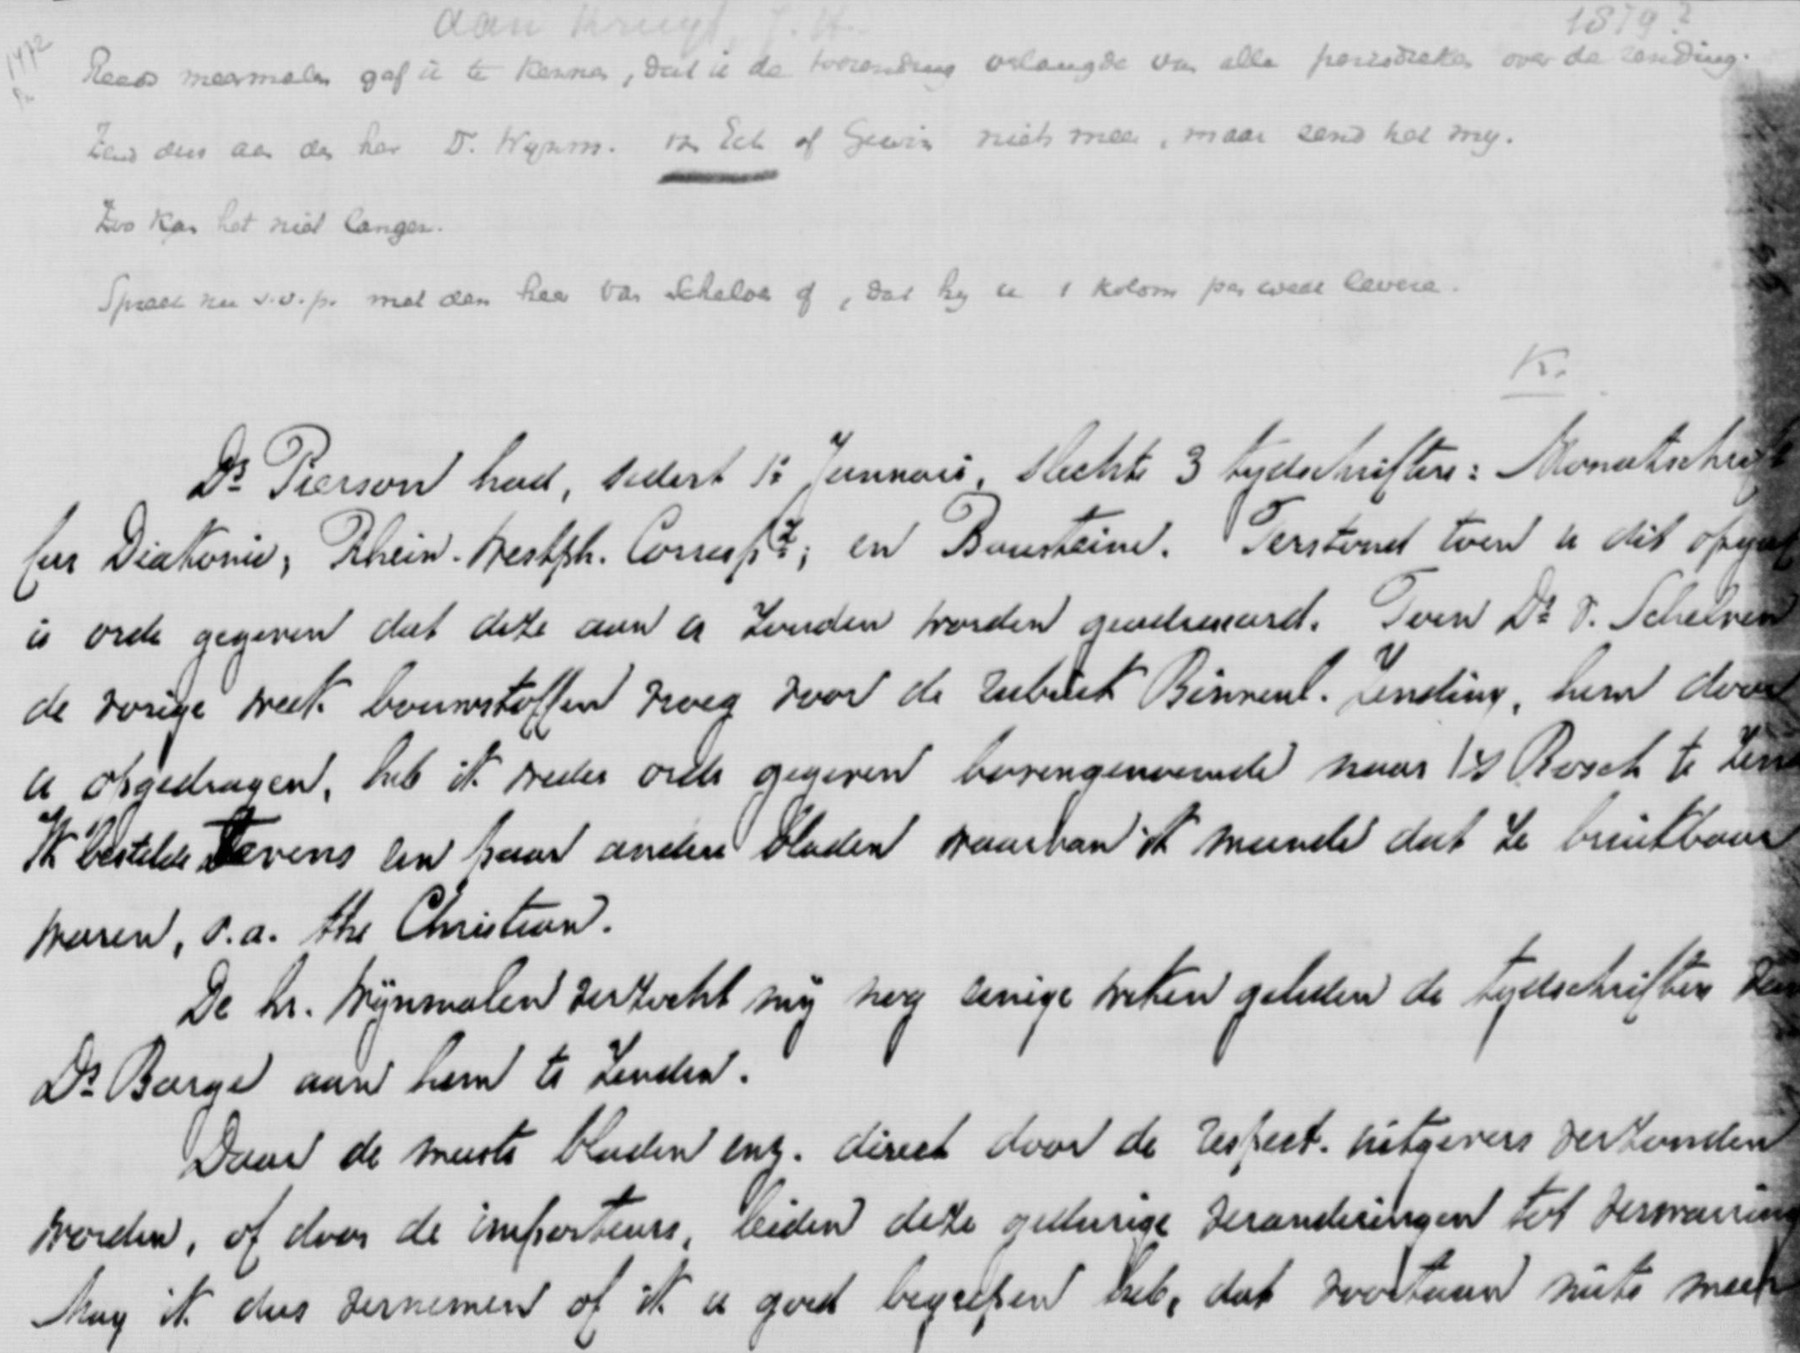 aan Kruyt, J. H.
1879?
1472
Reeds meermalen gaf ik te kennen, dat ik de toezending verlangde van alle periodieken over de zending.
Zend dus aan den heer D. Wijnm. van Eck of Gewin niets meer, maar zend het mij.
Zoo kan het niet langer.
Spreek nu s.v.p. met den heer van Schelven af, dat hij u 1 kolom per week levere.
K.
Ds Pierson had, sedert 1o Januari, slechts 3 tijdschriften: Monatschrift
für Diakonie, Rhein. Westph. Corresp.; en Bausteine. Terstond toen u dit opgaf
is orde gegeven dat deze aan u zouden worden geadresseerd. Toen Ds v. Schelven
de vorige week bouwstoffen vroeg voor de rubriek Binnenl. Zending, hem door
u opgedragen, heb ik weder orde gegeven bovengenoemde naar 's Bosch te
Ik bestelde tevens een paar andere bladen waarvan ik meende dat ze bruikbaar
waren, o.a. the Christian.
De hr. Wijnmalen verzocht mij nog eenige weken geleden de tijdschriften van
Ds Barger aan hem te zenden.
Daar de meeste bladen enz. direct door de respect. uitgevers verzonden
worden, of door de importeurs, leiden deze gedurige veranderingen tot verwarring
Mag ik dus vernemen of ik u goed begrepen heb, dat voortaan niets meer